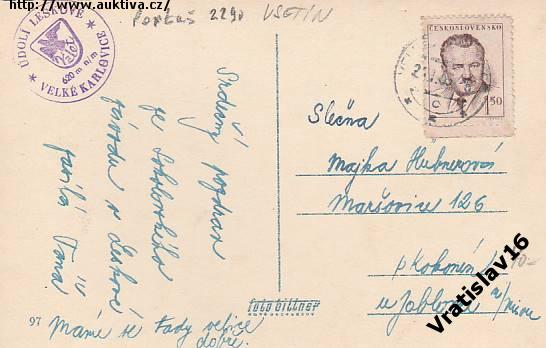 http://www.auktiva.cz/
Portáš 2290 VSETÍN
ÚDOLÍ LESKOVÉ
620 m n/m
VELKÉ KARLOVICE
ČESKOSLOVENSKO
1.50
Srdečný pozdrav
ze Sokolovského
závodu v Leskové
posílá
Máme se tady velice
dobře.
Slečna
Majka Hubnerová
Maršovice 126
p Kokonín
u Jablonce n/Nisou
foto bittner
97
Vratislav16